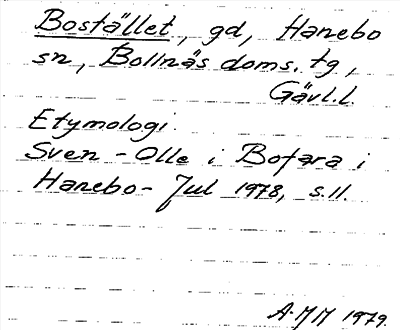 Bostället, gd, Hanebo
sn, Bollnäs doms. tg,
Gävl.l.
Etymologi.
Sven-Olle i Bofara i
Hanebo-Jul 1978, s.11.
A.MM 1979.